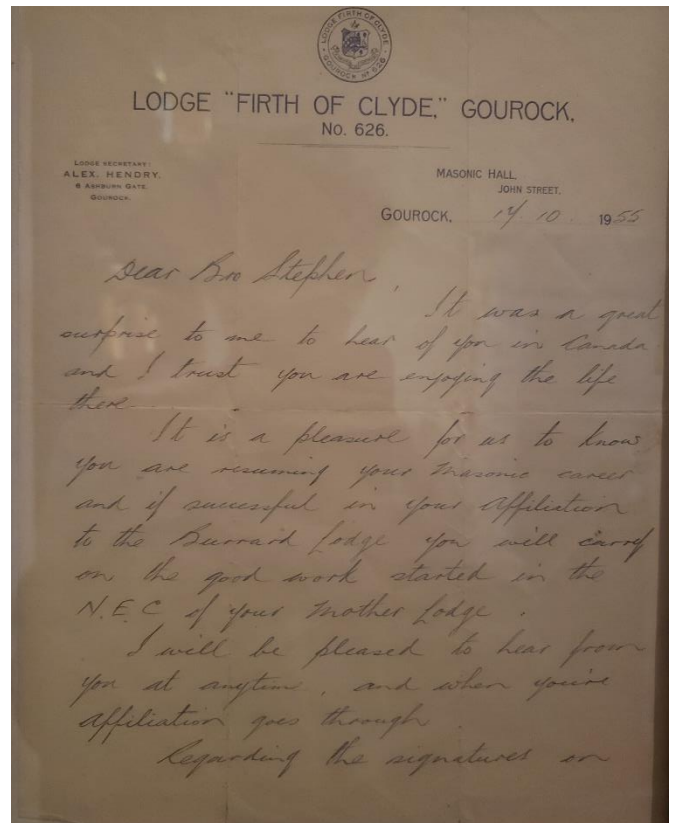 LODGE FIRTH OF CLYDE
GOUROCK No 626
LODGE "FIRTH OF CLYDE," GOUROCK,
No. 626.
LODGE SECRETARY:
ALEX. HENDRY.
6 ASHBURN GATE,
GOUROCK.
MASONIC HALL,
JOHN STREET,
GOUROCK, 10. 1955
Dear Bro Stephen,
It was a great
surprise to me to hear of you in Canada
and I trust you are enjoying the life
there.
It is a pleasure for us to know
you are resuming your Masonic career
and if successful in your Affiliation
to the Burrard Lodge you will carry
on the good work started in the
N.E.C of your Mother Lodge.
I will be pleased to hear from
you at anytime, and when you're
Affiliation goes through.
Regarding the signatures on